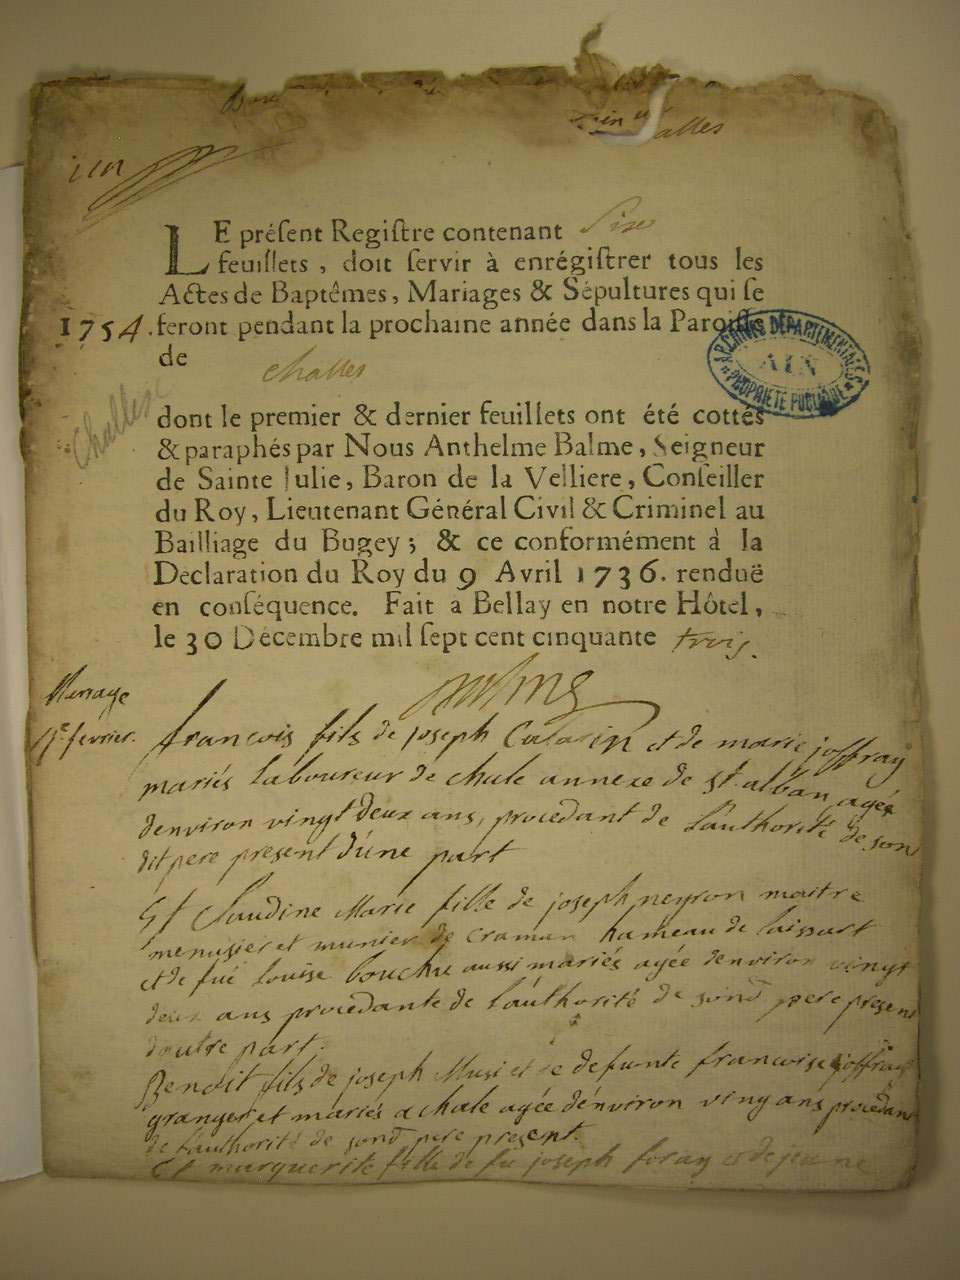 alles
LE préſent Regiſtre contenant Six
feuillets, doit ſervir à enrégiſtrer tous les
Actes de Baptêmes, Mariages & Sépultures qui ſe
1754. feront pendant la prochaine année dans la Paroiſſe
de challes
ARCHIVES DÉPARTEMENTALES
AIN
PROPRIÉTÉ PUBLIQUE
Challes
dont le premier & dernier feuillets ont été cottés
& paraphés par Nous Anthelme Balme, Seigneur
de Sainte Julie, Baron de la Velliere, Conſeiller
du Roy, Lieutenant Général Civil & Criminel au
Bailliage du Bugey; & ce conformément à la
Declaration du Roy du 9 Avril 1736. renduë
en conſéquence. Fait a Bellay en notre Hôtel,
le 30 Décembre mil ſept cent cinquante trois.
Mariage
fevrier.
francois fils de joseph et de marie joffray
mariés laboureur de chale annexe de St. alban agée
denviron vingt deux ans, procedant de l'authorité de son
dit pere present d'une part
Et Claudine Marie fille de joseph neyron maitre
menusier et munier de craman hameau de
et de fue Louise bouchu aussi mariés agée denviron vingt
deux ans procedante de l'authorité de sond pere present
d'autre part.
Benoit fils de joseph Musi et de defunte francoise joffray
granger et mariés a chale agée d'environ vingt ans procedant
de l'authorité de sond pere present.
Et marguerite fille de fu joseph foray et de jeane